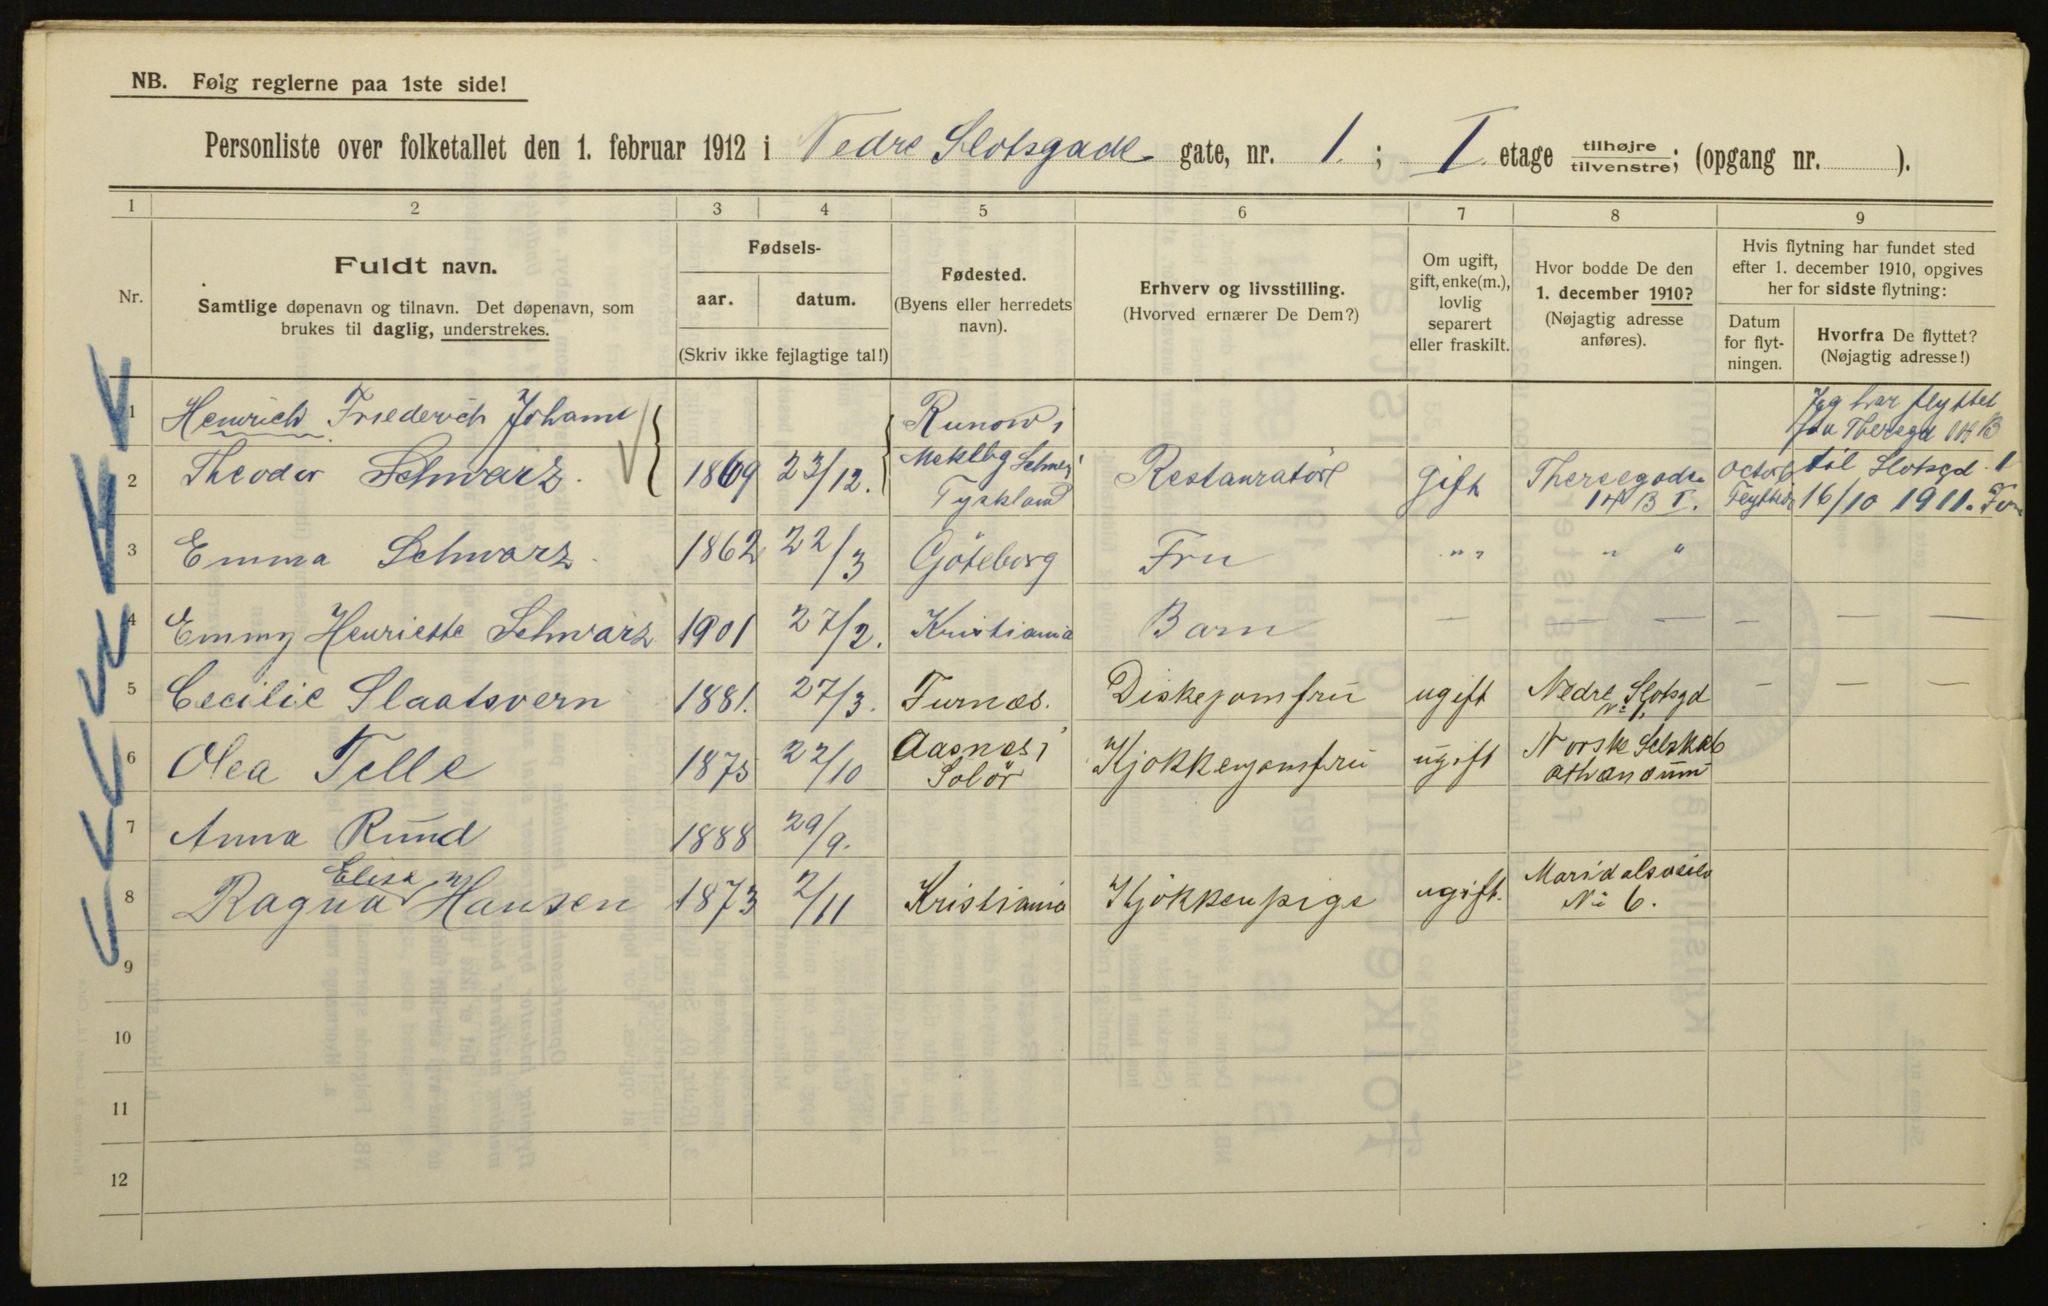 NB. Følg reglerne paa 1ste side!
Personliste over folketallet den 1. februar 1912 i Nedre Slotsgade gate, nr. 1. ; I etage tilhøjre tilvenstre; (opgang nr. ).
1 2 3 4 5 6 7 8 9
Nr.
Fuldt navn.
Samtlige døpenavn og tilnavn. Det døpenavn, som
brukes til daglig, understrekes.
Fødsels-
aar. datum.
(Skriv ikke fejlagtige tal!)
Fødested.
(Byens eller herredets
navn).
Erhverv og livsstilling.
(Hvorved ernærer De Dem?)
Om ugift,
gift, enke(m.),
lovlig
separert
eller fraskilt.
Hvor bodde De den
1. december 1910?
(Nøjagtig adresse
anføres).
Hvis flytning har fundet sted
efter 1. december 1910, opgives
her for sidste flytning:
Datum
for flyt-
ningen.
Hvorfra De flyttet?
(Nøjagtig adresse!)
1 Henrich Friederich Johann Runow, Jeg har flyttet
fra Thersgd 14 B
2 Theodor Schwarz. 1869 23/12. Meklbg Tyskland Restauratör Gift Theresegade 14 B I. October til Slotsgd 1
16/10 1911.
3 Emma Schwarz 1862 22/3 Göteborg Fru " " " "
4 Emmy Henriette Schwarz 1901 27/2. Kristiania Barn — — — — — —
5 Cecilie Slaatsvern 1881. 27/3. Furnæs. Diskejomfru ugift Nedre Slotsgd No 1. — — —
6 Olea Telle 1875 22/10 Aasnes i Solör Kjøkkenjomfru ugift Norske Selskab Athenæum
7 Anna Rund 1888 29/9.
8 Ragna Elise Hansen 1873 2/11 Kristiania Kjøkkenpige ugift. Maridalsveien No 6.
9
10
11
12